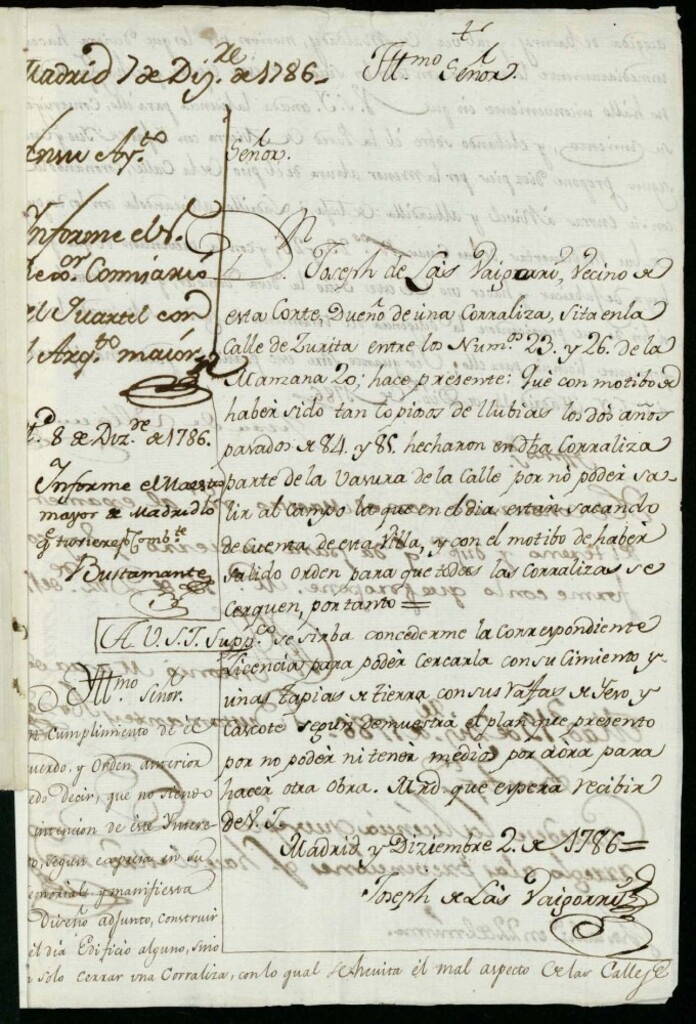 Madrid 7 de Diz.re de 1786.
Ill.mo Señor.
Informe el S.
Comisario
el Quartel con
el Arq.to maior
8 de Diz.re de 1786.
Informe el Maestro
mayor de Madrid lo
q.e tuviere p.r comb.te
Bustamante
Señor.
Dn. Joseph de Lais, Vecino de
esta Corte, Dueño de una Corraliza, sita en la
Calle de Zurita entre los Num.os 23. y 26. de la
Manzana 20; hace presente: Que con motibo de
haber sido tan Copiosos de llubias los dos años
pasados de 84. y 85. hecharon en dha Corraliza
parte de la vasura de la Calle por no poder sa-
lir al Campo la que en el dia estan sacando
de Cuenta de esta Villa, y con el motibo de haber
salido orden para que todas las Corralizas se
Cerquen, por tanto =
A V.S.I. Supp.co se sirba concederme la Correspondiente
licencia para poder Cercarla con su Cimiento y
unas tapias de tierra con sus Raffas de Yeso y
Cascote segun demuestra el plan que presento
por no poder ni tener medios por aora para
hacer otra obra. Mrd que espera recibir
de V. I.
Madrid y Diziembre 2. de 1786 =
Joseph de Lais
Ill.mo Señor.
en Cumplimiento de el
Acuerdo, y Orden anterior
puedo decir, que no siendo
la intencion de este Intere-
segun expresa en su
memorial, y manifiesta
Diseño adjunto, construir
el dia Edificio alguno, sino
solo cerrar una Corraliza, con lo qual se evita el mal aspecto de las Calles